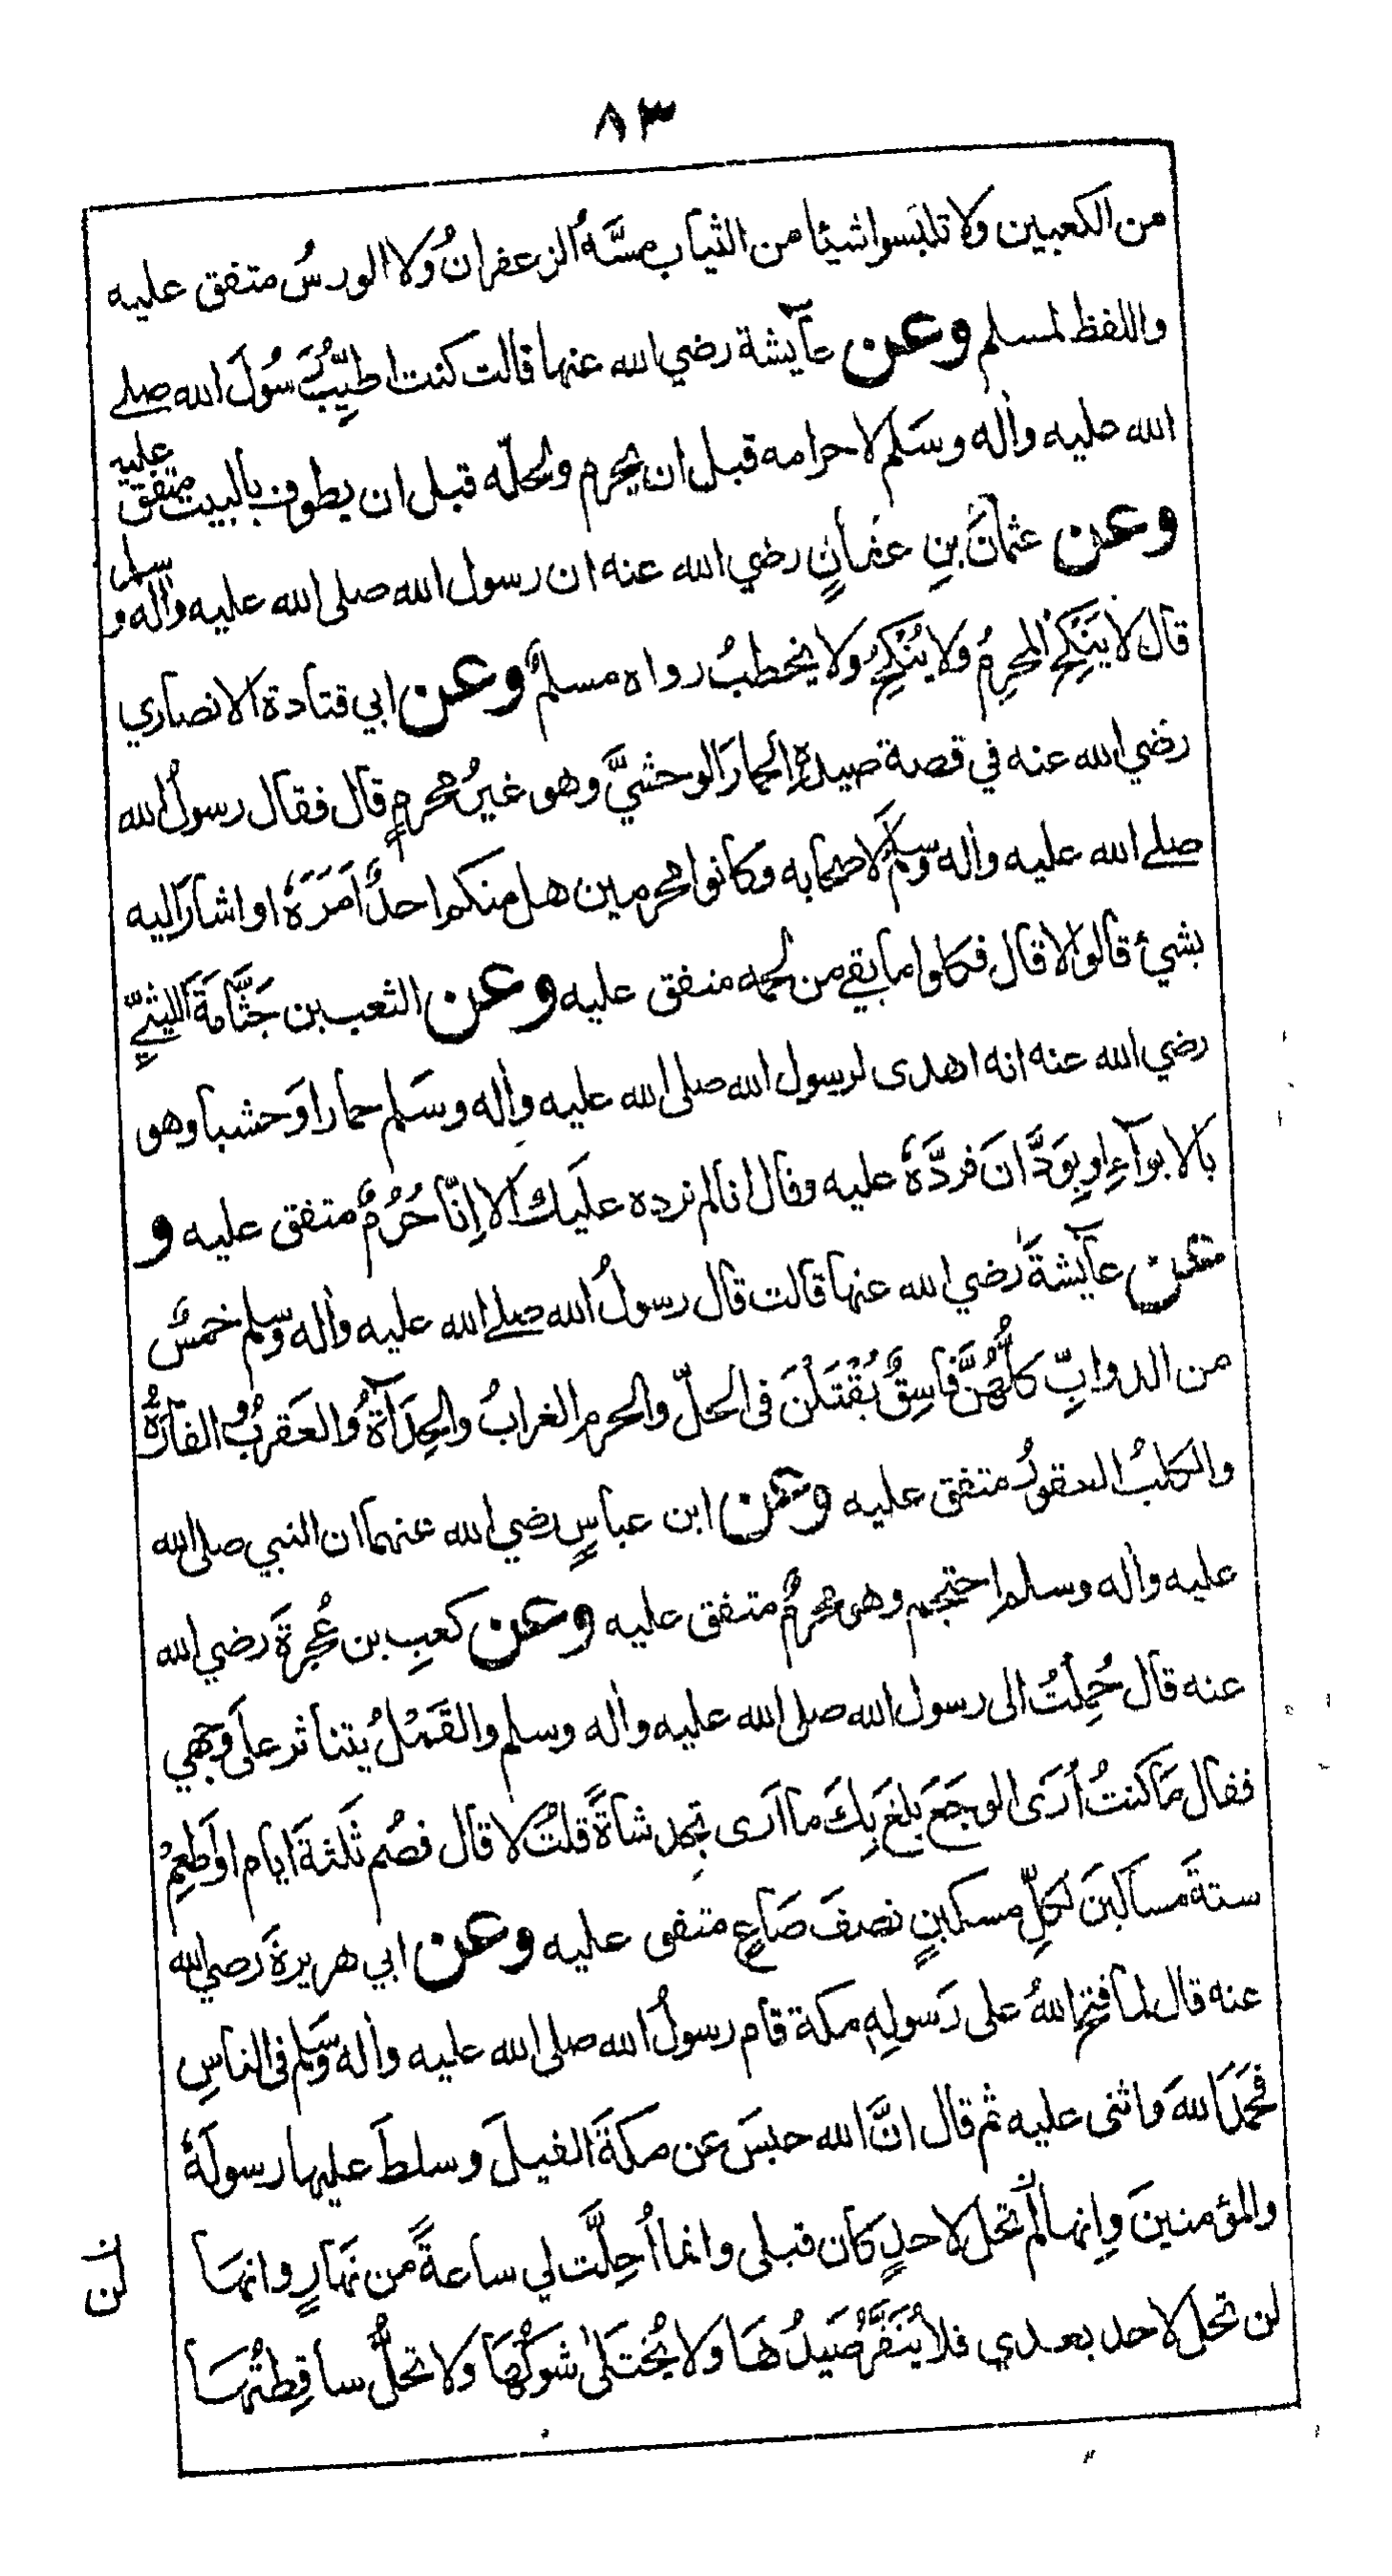 ٨٣
من الكعبين ولا تلبَسوا شيئا من الثياب مسَّهُ الزعفرانُ ولا الورسُ متفق عليه
واللفظ لمسلم وعن عآيشة رضي الله عنها قالت كنت اطيِّبُ رسُولَ الله صلى
الله عليه واٰله وسَلم لاحرامه قبل ان يحرم ولحلّه قبل ان يطوف بالبيت متفق عليه
وعن عثمانَ بنِ عفانٍ رضي الله عنه ان رسول الله صلى الله عليه واٰله وسلم
قال لا يَنْكِحُ المحرِمُ ولا يُنْكَحُ ولا يخطبُ رواه مسلمٌ وعن ابي قتادة الانصاري
رضي الله عنه في قصة صيدهِ الحمارَ الوحشيَّ وهو غيرُ محرمٍ قال فقال رسولُ الله
صلى الله عليه واٰله وسلم لاصحابه وكانوا محرمين هل منكم احدٌ اَمَرَهُ او اشارَ اليه
بشيءٍ قالوا لا قال فكلوا ما بقي من لحمه متفق عليه وعن الثعب بن جَثَّامَةَ الليثيِّ
رضي الله عنه انه اهدى لرسول الله صلى الله عليه واٰله وسَلم حمارا وَحشيا وهو
بالابوآءِ او بِوَدَّانَ فردَّهُ عليه وقال انا لم نرده علَيك الا اِنّا حُرُمٌ متفق عليه و
عن عآيشةَ رَضي الله عنها قالت قال رسولُ الله صلى الله عليه واٰله وسلم خمسٌ
من الدوابِّ كلُّهُنَّ فاسِقٌ يُقْتَلْنَ فى الحلّ والحرم الغرابُ والحِدَآةُ والعَقربُ والفأرةُ
والكلبُ العقورُ متفق عليه وعن ابن عباسٍ رضي الله عنهما ان النبي صلى الله
عليه واٰله وسلم احتجم وهو محرمٌ متفق عليه وعن كعبِ بن عُجرةَ رضي الله
عنه قال حُمِلْتُ الى رسول الله صلى الله عليه واٰله وسلم والقَمْلُ يتناثر علَى وَجهي
فقال مَا كنتُ اُرَى الوجَعَ بلغَ بِكَ ما اَرى تجِد شاةً قلتُ لا قال فصُم ثَلٰثةَ ايام او اَطعِمْ
ستةَ مساكينَ لكلِّ مسكينٍ نصفَ صَاعٍ متفق عليه وعن ابي هريرةَ رَضي الله
عنه قال لما فتح اللهُ على رَسولهِ مكة قام رسولُ الله صلى الله عليه واٰله وسَلم فى الناسِ
فحَمَدَ اللهَ واثنى عليه ثم قال انَّ الله حبسَ عن مكةَ الفيلَ وسلطَ عليها رسولَهُ
والمؤمنينَ وانها لم تحل لاحدٍ كان قبلى وانما اُحِلَّت لي ساعةً من نهَارٍ وانهَا
لن
لن تحل لاحد بعدي فلا يُنَفَّرُ صَيدُهَا ولا يُختَلىٰ شَوكُهَا ولا تحلُّ ساقِطتُهَا